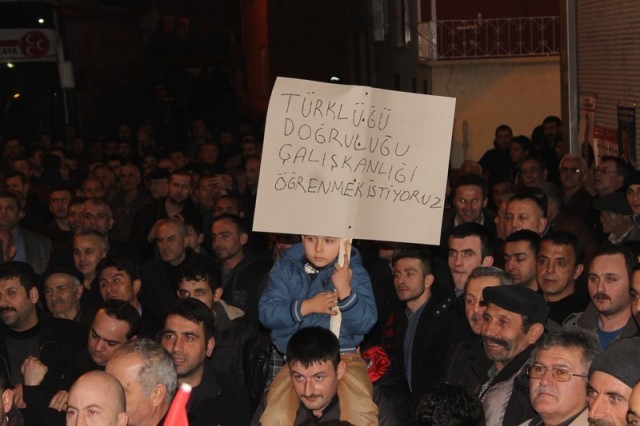 TÜRKLÜĞÜ
DOĞRULUĞU
ÇALIŞKANLIĞI
ÖĞRENMEK İSTİYORUZ